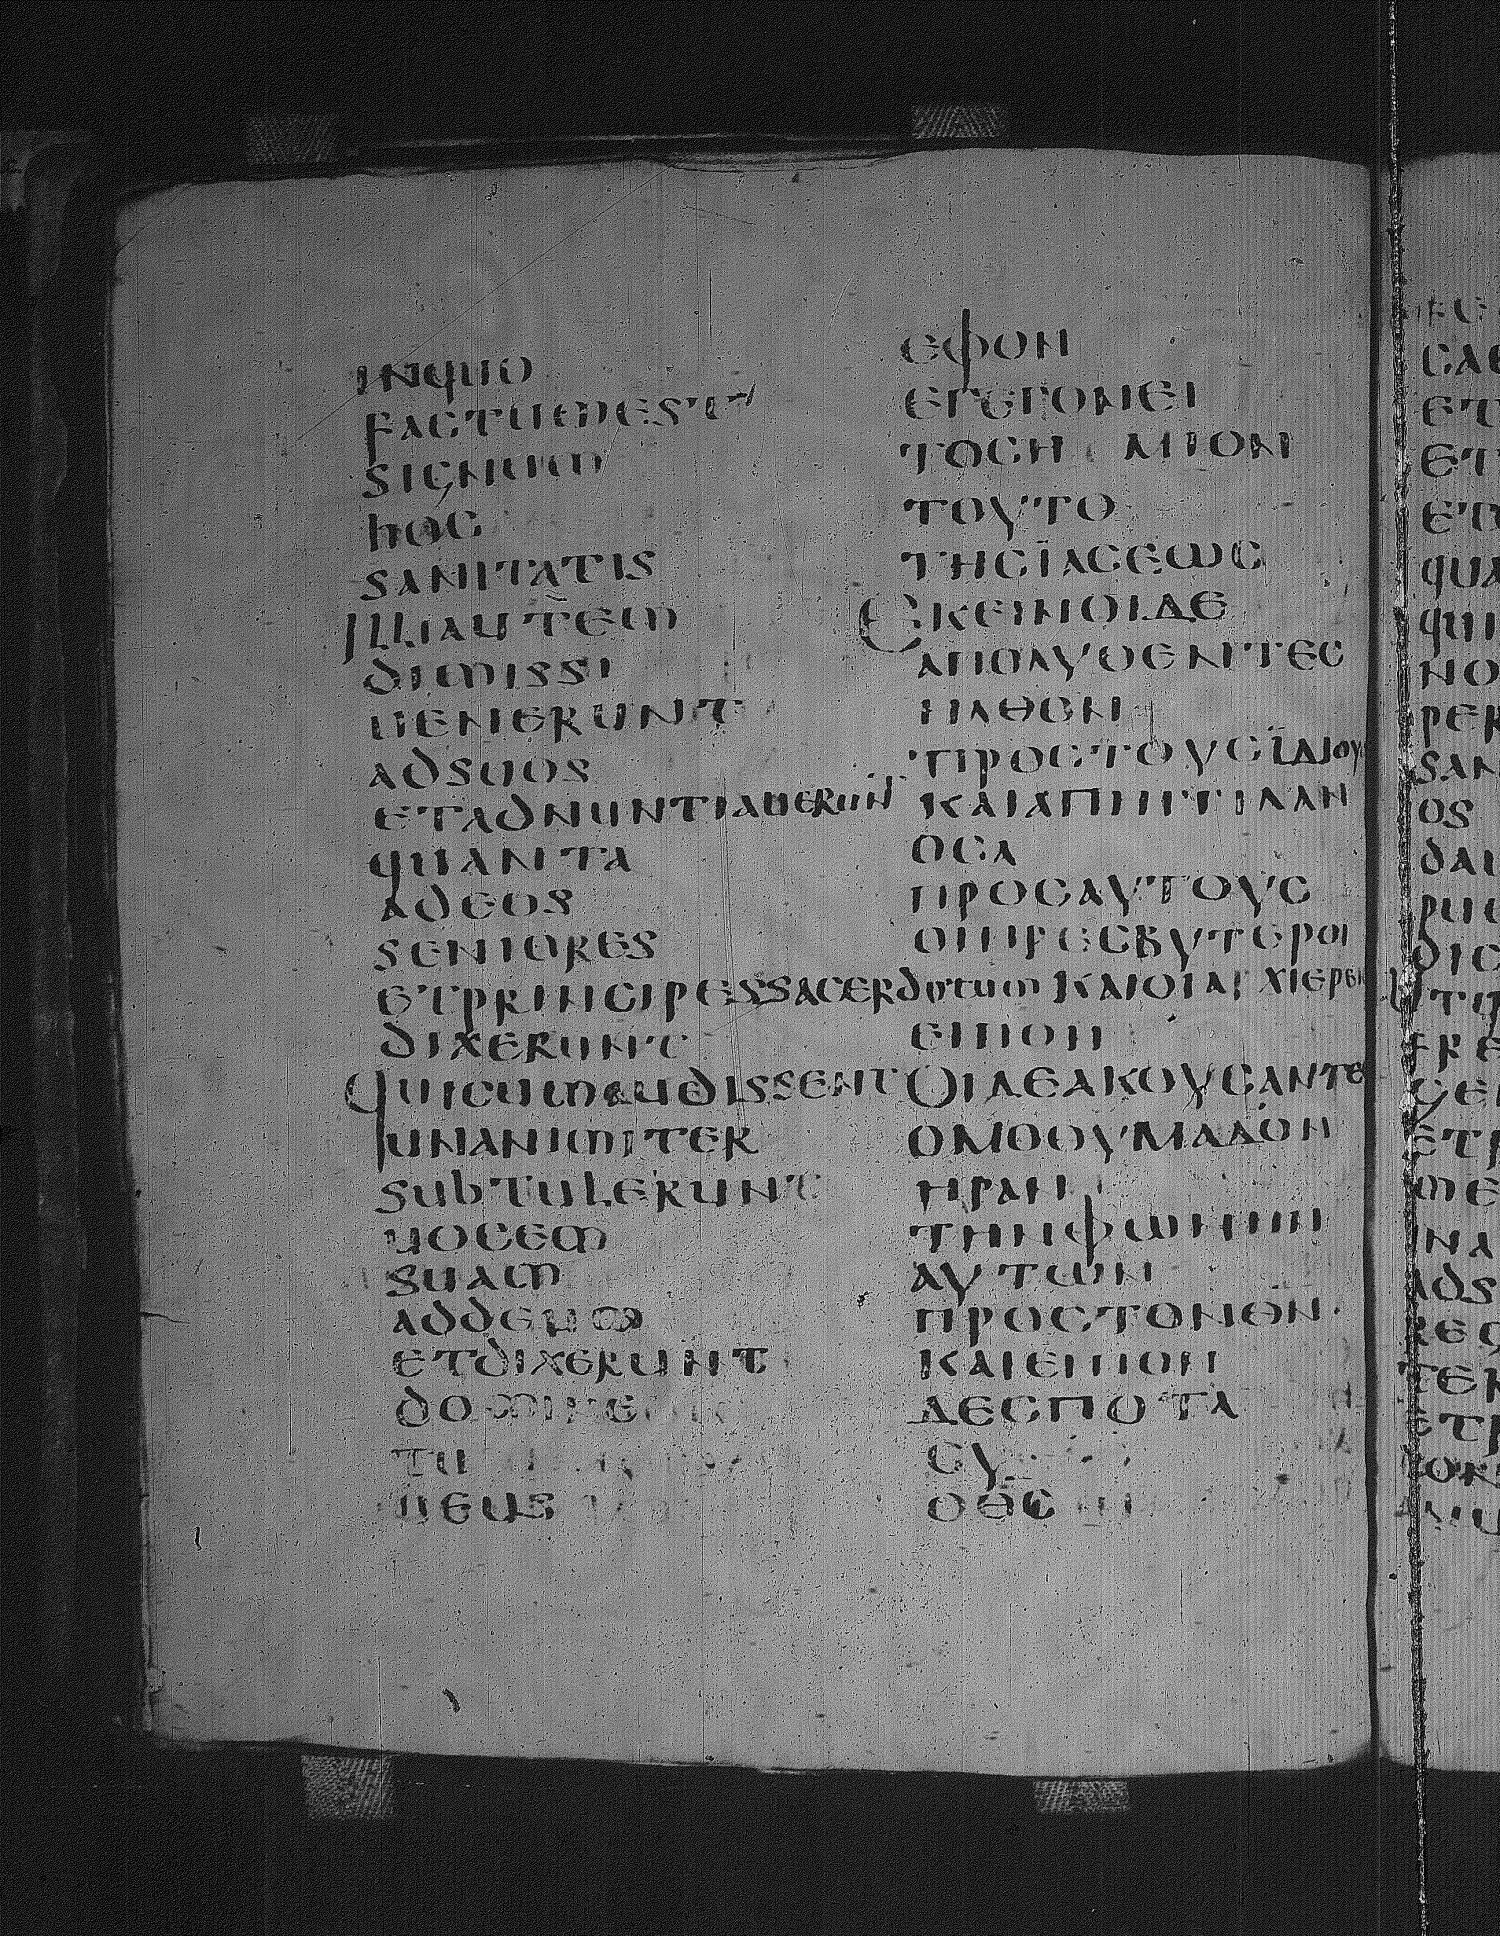 INQUO
FACTUMEST
SIGNUM
hOC
SANITATIS
ILLIAUTEM
DIMISSI
UENERUNT
ADSUOS
ETADNUNTIAUERUNT
QUANTA
ADEOS
SENIORES
ETPRINCIPESSACERDOTUM
DIXERUNT
QUICUMAUDISSENT
UNANIMITER
SUBTULERUNT
UOCEM
SUAM
ADDEUM
ETDIXERUNT
DOMINE
TU
DEUS
ΕΦΟΝ
ΕΓΕΓΟΝΕΙ
ΤΟCΗΜΙΟΝ
ΤΟΥΤΟ
ΤΗCΪΑCΕѠC
ΕΚΕΙΝΟΙΔΕ
ΑΠΟΛΥΘΕΝΤΕC
ΗΛΘΟΝ
ΠΡΟCΤΟΥCΪΔΙΟΥC
ΚΑΙΑΠΗΓΓΙΛΑΝ
ΟCΑ
ΠΡΟCΑΥΤΟΥC
ΟΙΠΡΕCΒΥΤΕΡΟΙ
ΚΑΙΟΙΑΡΧΙΕΡΕΙC
ΕΙΠΟΝ
ΟΙΔΕΑΚΟΥCΑΝΤΕC
ΟΜΟΘΥΜΑΔΟΝ
ΗΡΑΝ
ΤΗΝΦѠΝΗΝ
ΑΥΤѠΝ
ΠΡΟCΤΟΝΘΝ
ΚΑΙΕΙΠΟΝ
ΔΕCΠΟΤΑ
CΥ
ΟΘC